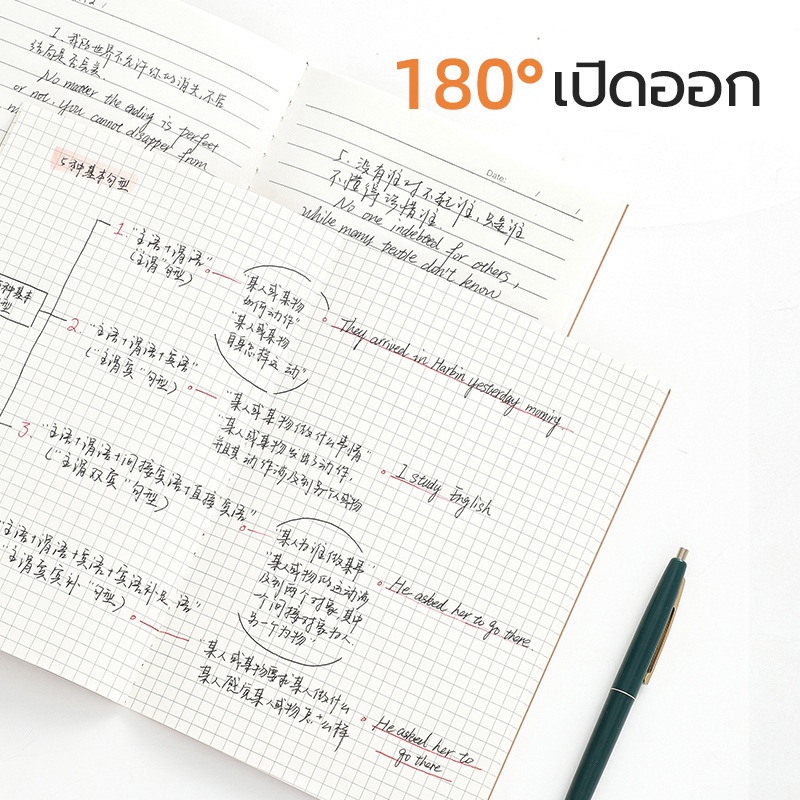 180° เปิดออก
1. 我的世界不允许你的消失,不管
结局是否完美.
No matter the ending is perfect
or not, you cannot disapper from
Date: / /
5. 没有谁对不起谁,只是谁
不懂得珍惜谁.
No one indebted for others,
while many people don't know
5种基本句型
种基本
句型
1. "主语+谓语"
("主谓"句型)
"某人或某物
如何动作"
"某人或某物
自身怎样运动"
They arrived in Harbin yesterday morning.
2. "主语+谓语+宾语"
("主谓宾"句型)
"某人或某物做什么事情"
"某人或某物发出了动作,
并且其动作涉及到另个人或物
I study English
3. "主语+谓语+间接宾语+直接宾语"
("主谓双宾"句型)
"某人为谁做某事"
"某人或物的运动涉
及到两个对象,其中
一个间接对象为人,
另一个为物"
He asked her to go there.
"主语+谓语+宾语+宾语补足语"
"主谓宾宾补"句型)
"某人或某物要求某人做什么
某人感觉某人或物怎么样
He asked her to
go there